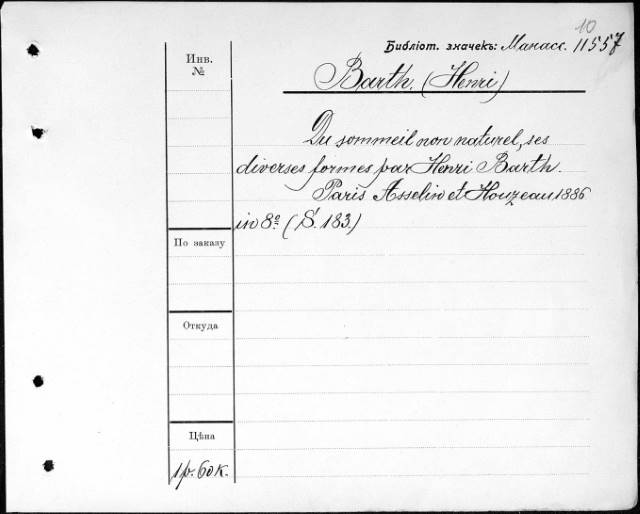 10
Библіот. значекъ: Манасс. 11557
Инв.
№
Barth. (Henri)
Du sommeil non naturel, ses
diverses formes par Henri Barth.
Paris Asselin et Houzeau 1886
in 8º (S. 183.)
По заказу
Откуда
Цѣна
1 р. 60 к.